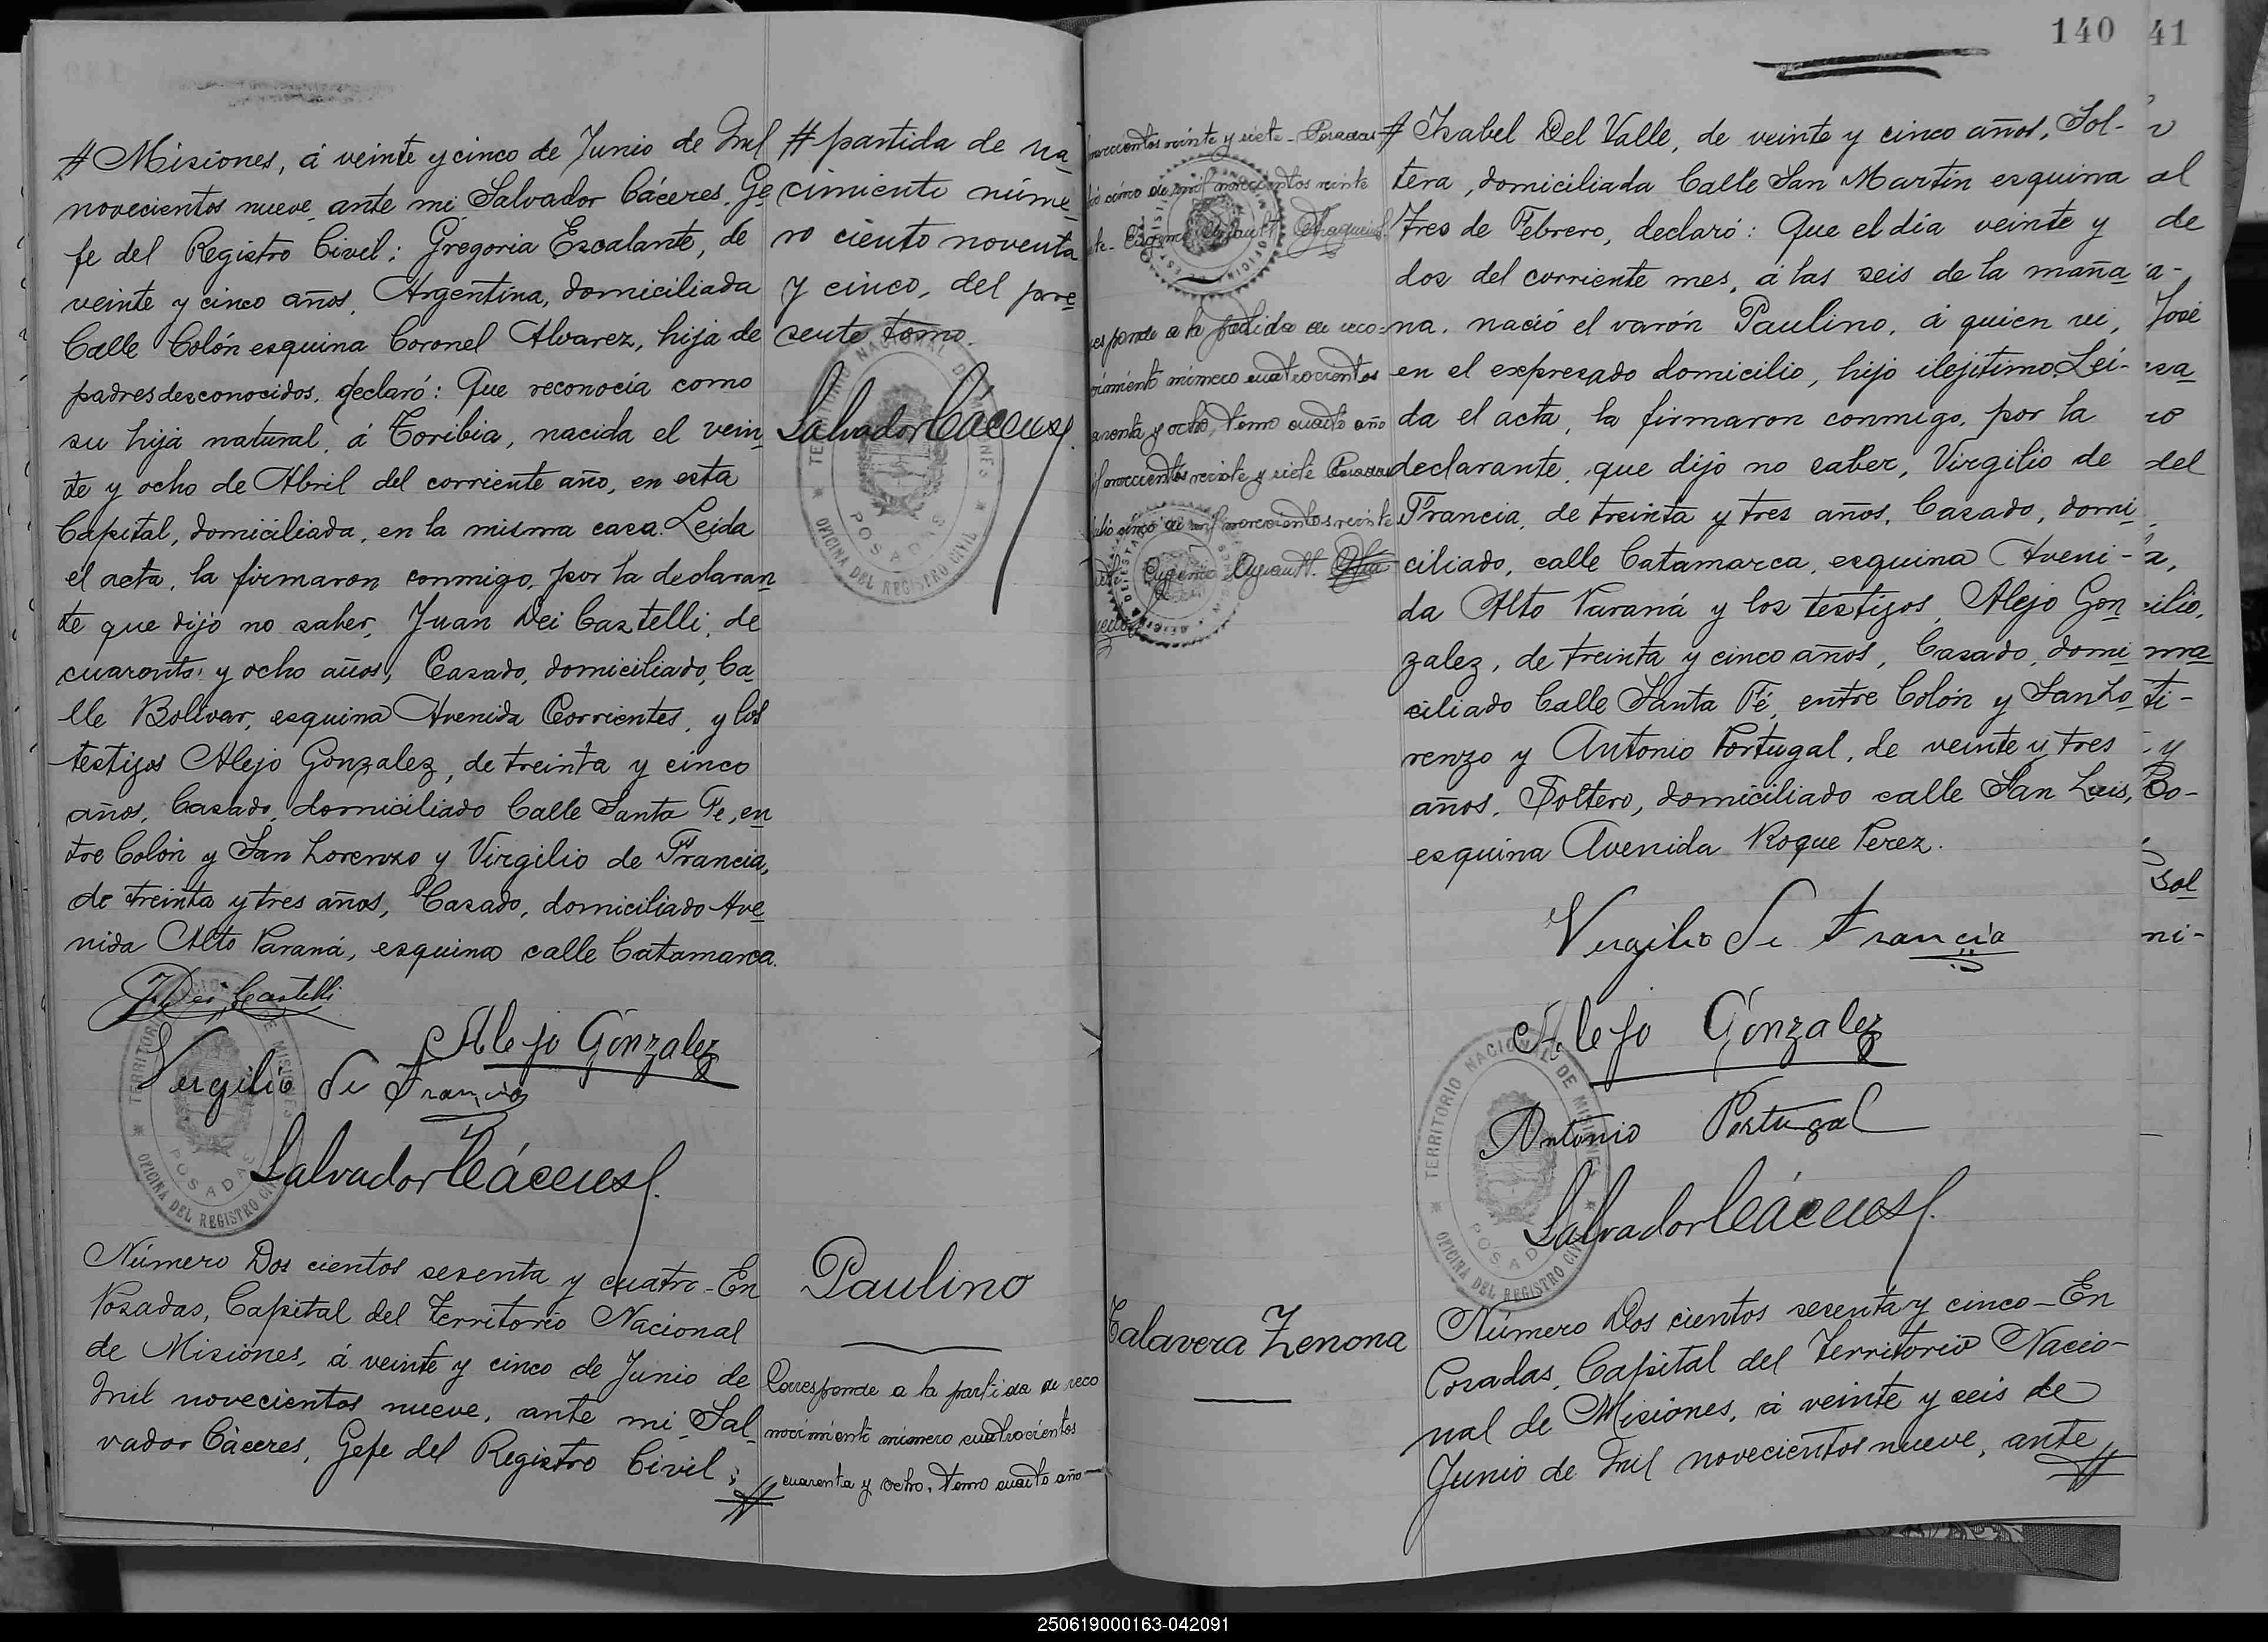 # Misiones, á veinte y cinco de Junio de Mil
novecientos nueve, ante mi Salvador Cáceres, Ge
fe del Registro Civil; Gregoria Escalante, de
veinte y cinco años, Argentina, domiciliada
Calle Colón esquina Coronel Alvarez, hija de
padres desconocidos, declaró: Que reconocía como
su hija natural, á Toribia, nacida el vein
te y ocho de Abril del corriente año, en esta
Capital, domiciliada, en la misma casa. Leida
el acta, la firmaron conmigo, por la declaran
te que dijó no saber, Juan Dei Castelli, de
cuarenta y ocho años, Casado, domiciliado, Ca
lle Bolívar, esquina Avenida Corrientes, y los
testigos Alejo Gonzalez, de treinta y cinco
años, Casado, domiciliado Calle Santa Fe, en
tre Colón y San Lorenzo y Virgilio de Francia,
de treinta y tres años, Casado, domiciliado Ave
nida Alto Paraná, esquina calle Catamarca.
J Dei Castelli
Alejo Gonzalez
Vergilio de Francia
Salvador Cáceres
TERRITORIO NACIONAL DE MISIONES
POSADAS
OFICINA DEL REGISTRO CIVIL
Número Dos cientos sesenta y cuatro - En
Posadas, Capital del Territorio Nacional
de Misiones, á veinte y cinco de Junio de
Mil novecientos nueve, ante mi Sal
vador Cáceres, Gefe del Registro Civil;
#
# partida de na
cimiento núme
ro ciento noventa
y cinco, del pre
sente tomo.
Salvador Cáceres
TERRITORIO NACIONAL DE MISIONES
POSADAS
OFICINA DEL REGISTRO CIVIL
Paulino
Corresponde a la partida de reco
nocimiento número cuatrocientos
cuarenta y ocho, tomo cuarto año
novecientos veinte y siete - Posadas
cinco de mil novecientos veinte
responde a la partida de reco-
nocimiento número cuatrocientos
cuarenta y ocho, tomo cuarto año
mil novecientos veinte y siete Posadas
Julio cinco de mil novecientos veinte
Talavera Zenona
140
41
# Isabel Del Valle, de veinte y cinco años, Sol-
tera, domiciliada Calle San Martín esquina
Tres de Febrero, declaró: Que el día veinte y
dos del corriente mes, á las seis de la maña
na, nació el varón Paulino, á quien vi,
en el expresado domicilio, hijo ilejítimo. Leí-
da el acta, la firmaron conmigo, por la
declarante, que dijó no saber, Virgilio de
Francia, de treinta y tres años, Casado, domi
ciliado, calle Catamarca, esquina Aveni-
da Alto Paraná y los testigos, Alejo Gon
zalez, de treinta y cinco años, Casado, domi
ciliado Calle Santa Fé, entre Colón y San Lo
renzo y Antonio Portugal, de veinte y tres
años, Soltero, domiciliado calle San Luis,
esquina Avenida Roque Perez.
Vergilio de Francia
Alejo Gonzalez
Antonio Portugal
Salvador Cáceres
TERRITORIO NACIONAL DE MISIONES
POSADAS
OFICINA DEL REGISTRO CIVIL
Número Dos cientos sesenta y cinco - En
Posadas, Capital del Territorio Nacio-
nal de Misiones, á veinte y seis de
Junio de Mil novecientos nueve, ante
#
al
de
a-
José
esa
ro
del
a,
cilio,
ma
ti-
y
Bo-
Sol
mi-
250619000163-042091